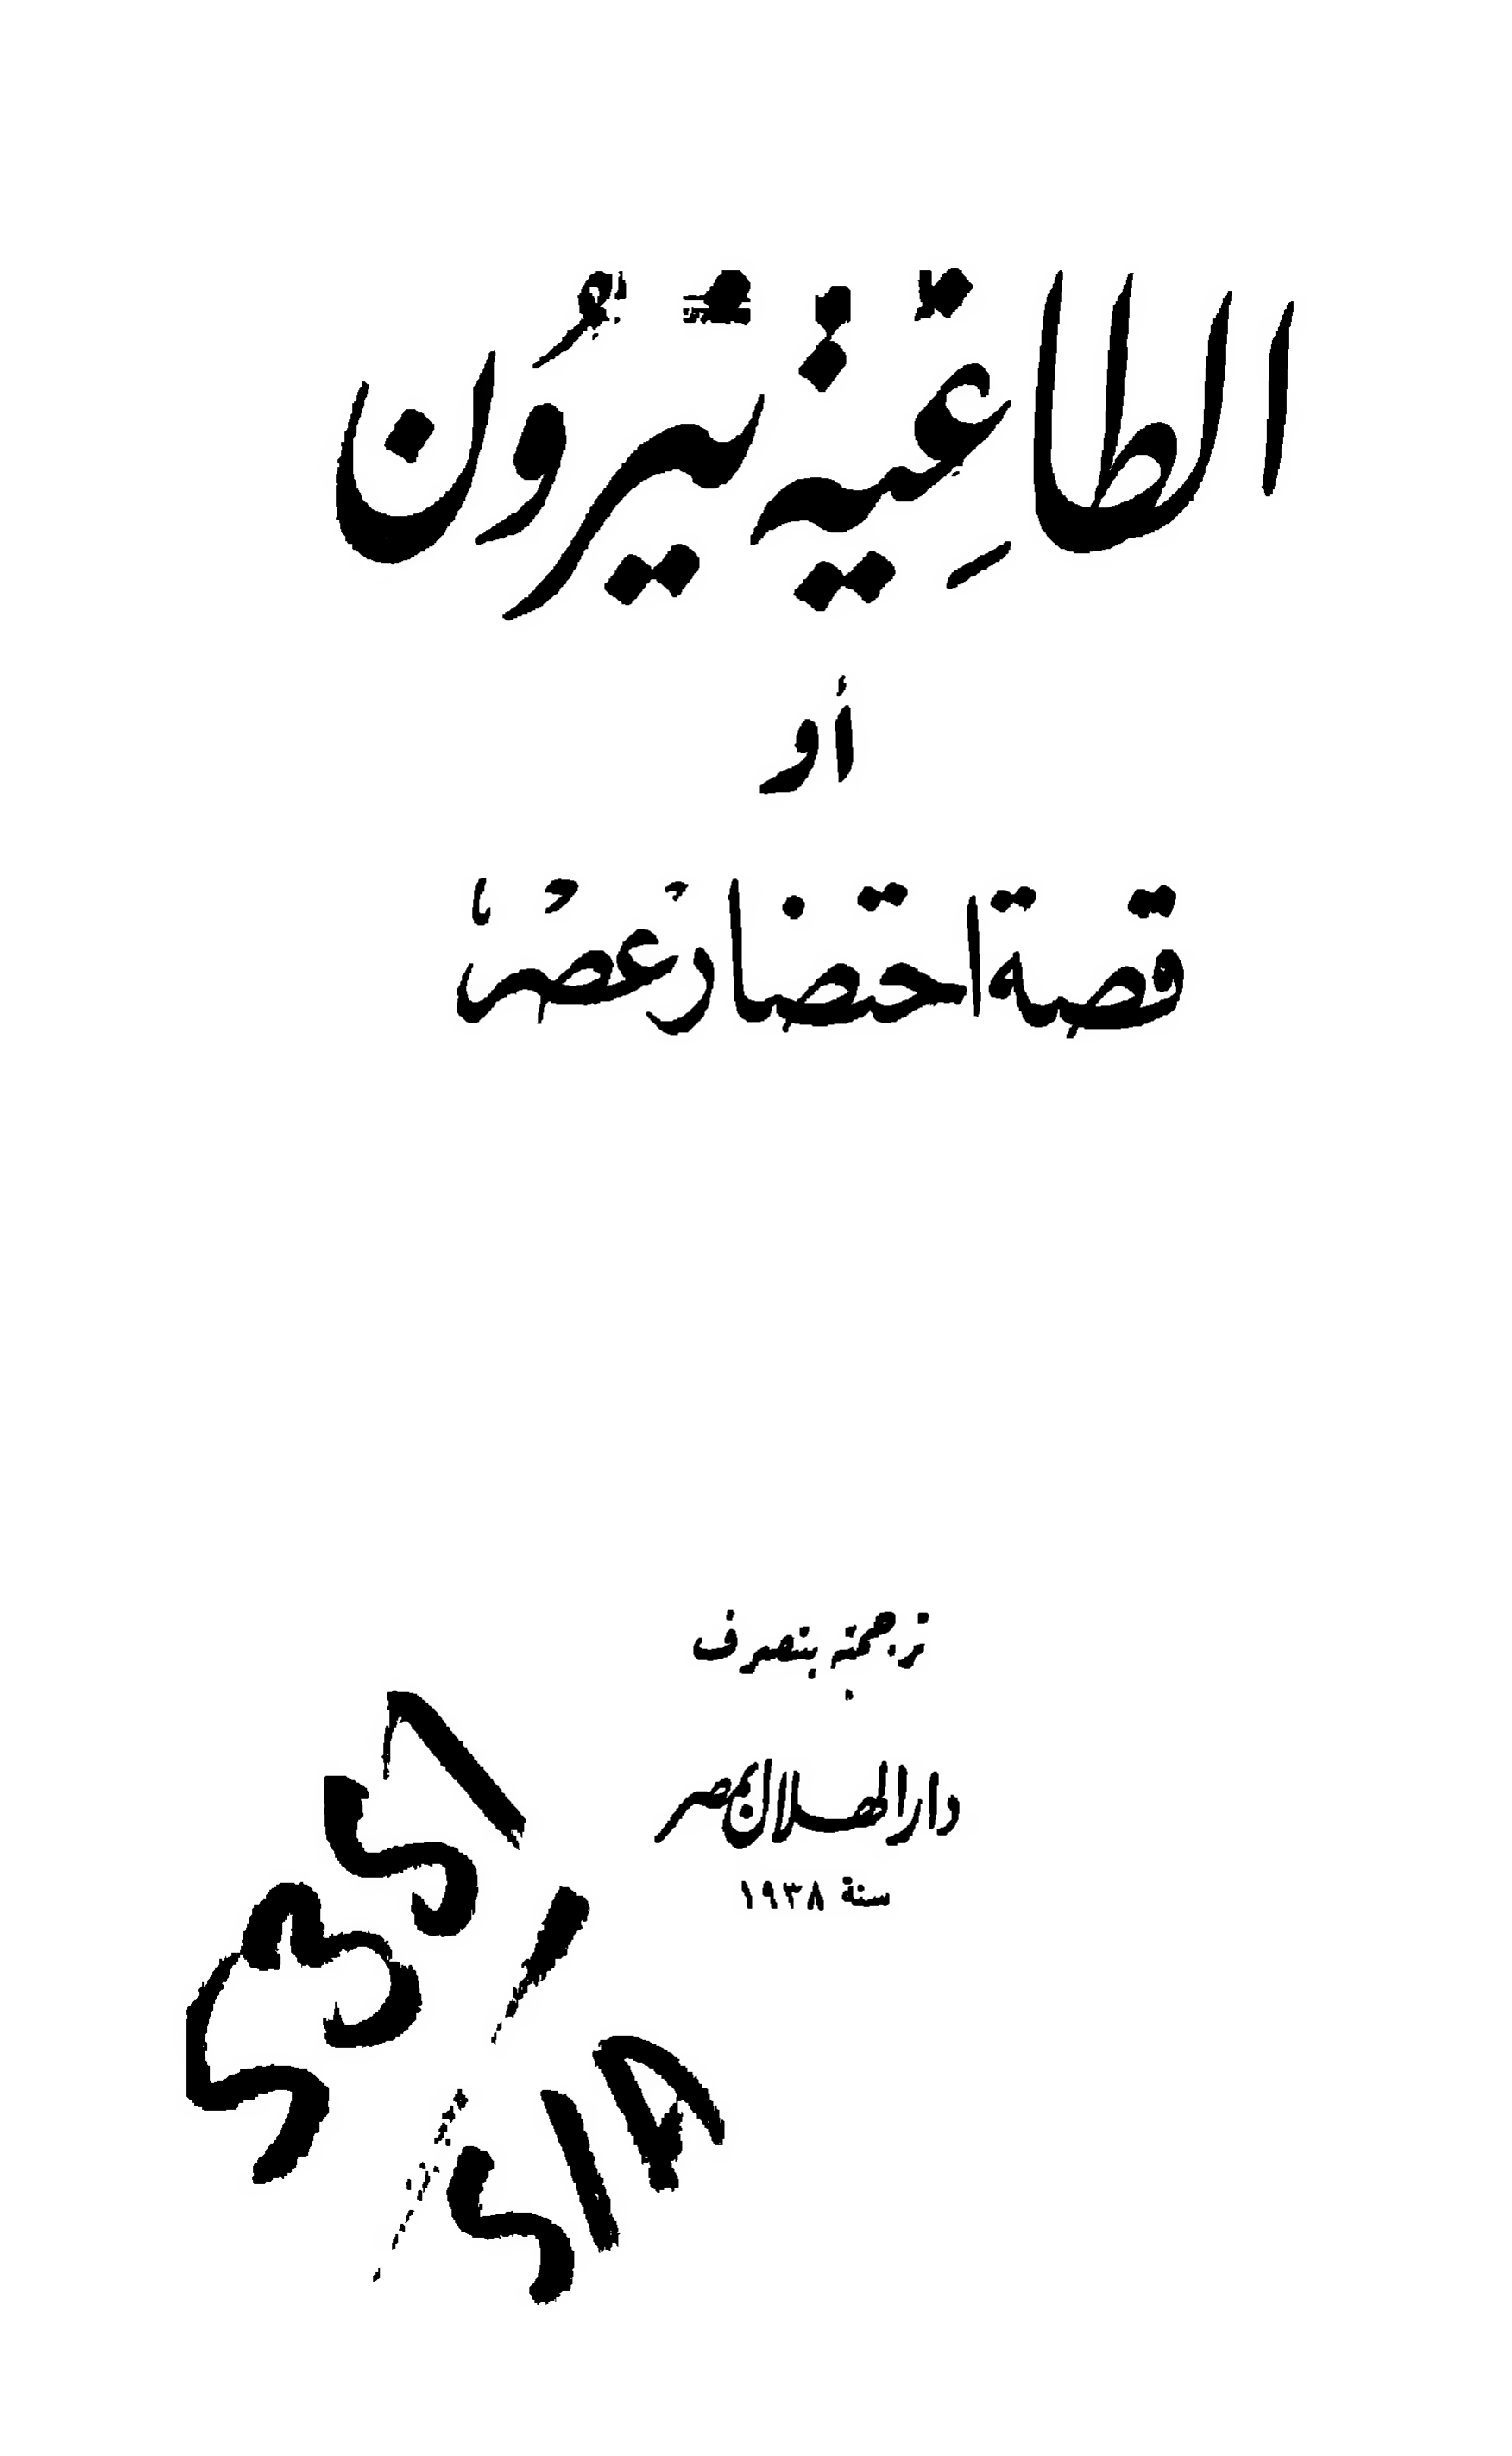 الطاغية نيرون
أو
قصة احتضار عصر
ترجمة بتصرف
دار الهلال بمصر
سنة ١٩٣٨